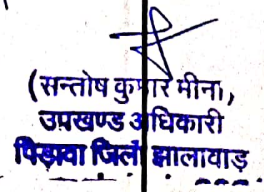 (सन्तोष कुमार मीना,
उपखण्ड अधिकारी
पिड़ावा जिला झालावाड़